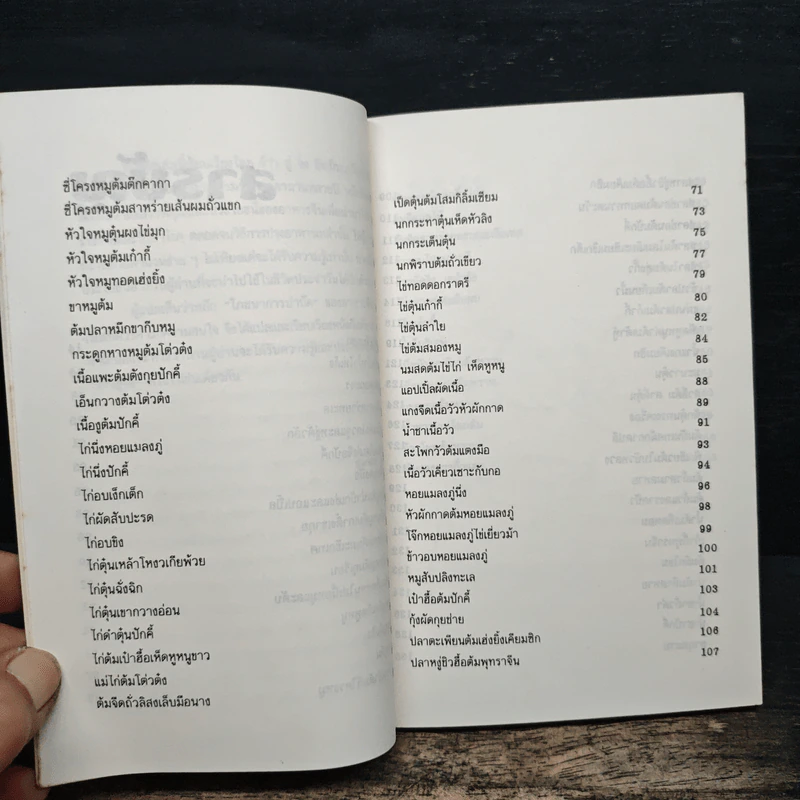 ซี่โครงหมูต้มตึ๊กคากา
ซี่โครงหมูต้มสาหร่ายเส้นผมถั่วแขก
หัวใจหมูตุ๋นผงไข่มุก
หัวใจหมูต้มเก๋ากี้
หัวใจหมูทอดเฮ่งยิ้ง
ขาหมูต้ม
ต้มปลาหมึกขากีบหมู
กระดูกหางหมูต้มโต่วต๋ง
เนื้อแพะต้มตังกุยปักคี้
เอ็นกวางต้มโต่วต๋ง
เนื้องูต้มปักคี้
ไก่นึ่งหอยแมลงภู่
ไก่นึ่งปักคี้
ไก่อบเง็กเต็ก
ไก่ผัดสับปะรด
ไก่อบขิง
ไก่ตุ๋นเหล้าโหงวเกียพ้วย
ไก่ตุ๋นฉั่งฉิก
ไก่ตุ๋นเขากวางอ่อน
ไก่ดำตุ๋นปักคี้
ไก่ต้มเป๋าฮื้อเห็ดหูหนูขาว
แม่ไก่ต้มโต่วต๋ง
ต้มจืดถั่วลิสงเล็บมือนาง
เป็ดตุ๋นต้มโสมกิลิ้มเซียม 71
นกกระทาตุ๋นเห็ดหัวลิง 73
นกกระเต็นตุ๋น 75
นกพิราบต้มถั่วเขียว 77
ไข่ทอดดอกราตรี 79
ไข่ตุ๋นเก๋ากี้ 80
ไข่ตุ๋นลำใย 82
ไข่ต้มสมองหมู 84
นมสดต้มไข่ไก่ เห็ดหูหนู 85
แอปเปิ้ลผัดเนื้อ 88
แกงจืดเนื้อวัวหัวผักกาด 89
น้ำชาเนื้อวัว 91
สะโพกวัวต้มแตงมือ 93
เนื้อวัวเคี่ยวเซาะกับกอ 94
หอยแมลงภู่นึ่ง 96
หัวผักกาดต้มหอยแมลงภู่ 98
โจ๊กหอยแมลงภู่ไข่เยี่ยวม้า 99
ข้าวอบหอยแมลงภู่ 100
หมูสับปลิงทะเล 101
เป๋าฮื้อต้มปักคี้ 103
กุ้งผัดกุยช่าย 104
ปลาตะเพียนต้มเฮ่งยิ้งเคียมซิก 106
ปลาหงู่ชิวฮื้อต้มพุทราจีน 107